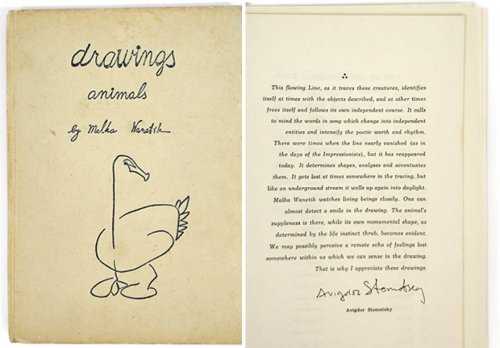 drawings
animals
by Malka Wanetik
This flowing Line, as it traces these creatures, identifies
itself at times with the objects described, and at other times
frees itself and follows its own independent course. It calls
to mind the words in song which change into independent
entities and intensify the poetic worth and rhythm.
There were times when the line nearly vanished (as in
the days of the Impressionists), but it has reappeared
today. It determines shapes, analyses and accentuates
them. It gets lost at times somewhere in the tracing, but
like an underground stream it wells up again into daylight.
Malka Wanetik watches living beings closely. One can
almost detect a smile in the drawing. The animal's
suppleness is there, while its own monumental shape, as
determined by the life instinct throb, becomes evident.
We may possibly perceive a remote echo of feelings lost
somewhere within us which we can sense in the drawing.
That is why I appreciate these drawings
Avigdor Stematsky
Avigdor Stematsky